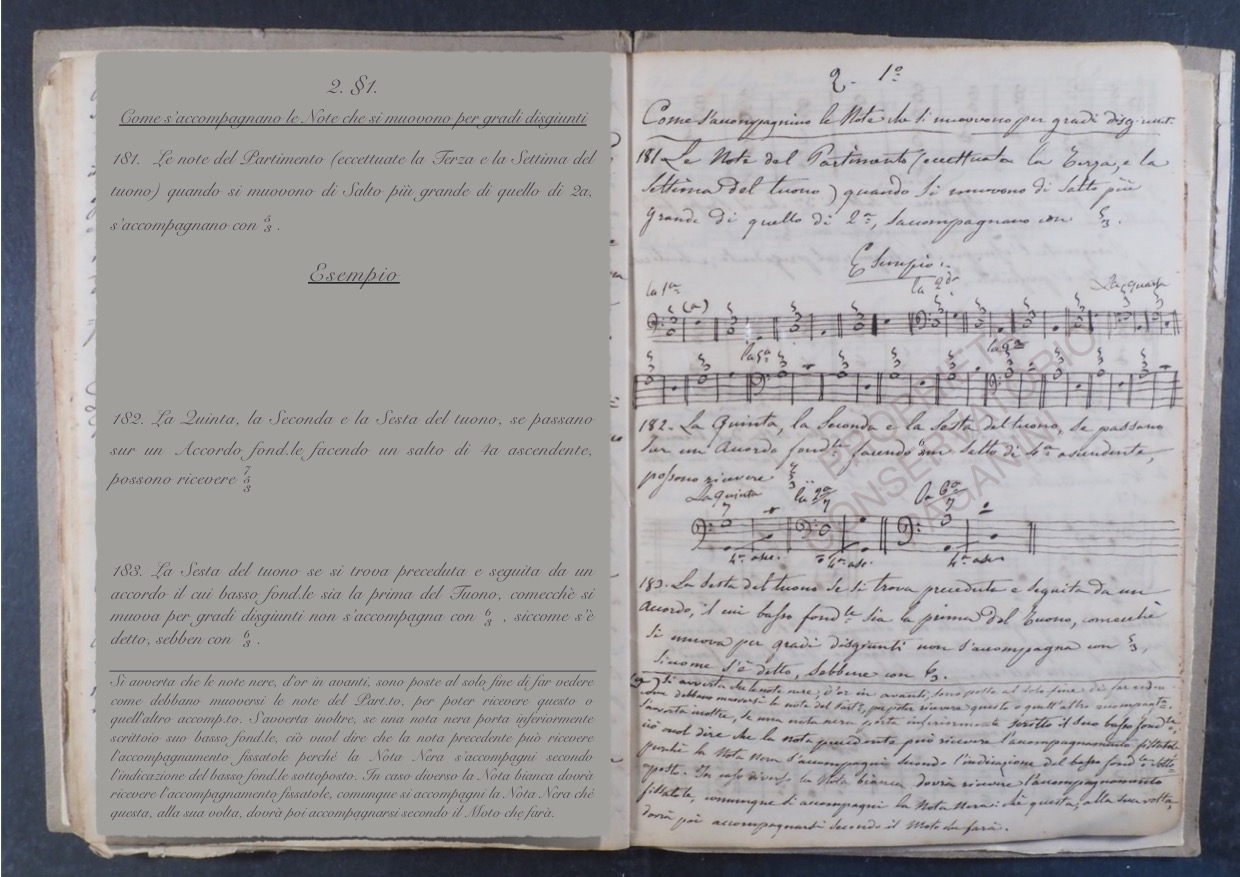 2. §1.
Come s'accompagnano le Note che si muovono per gradi disgiunti
181. Le note del Partimento (eccettuate la Terza e la Settima del
tuono) quando si muovono di Salto più grande di quello di 2a,
s'accompagnano con 5 3 .
Esempio
182. La Quinta, la Seconda e la Sesta del tuono, se passano
sur un Accordo fond.le facendo un salto di 4a ascendente,
possono ricevere 7 5 3
183. La Sesta del tuono se si trova preceduta e seguita da un
accordo il cui basso fond.le sia la prima del Tuono, comecchè si
muova per gradi disgiunti non s'accompagna con 6 3 , siccome s'è
detto, sebben con 6 3 .
Si avverta che le note nere, d'or in avanti, sono poste al solo fine di far vedere
come debbano muoversi le note del Part.to, per poter ricevere questo o
quell'altro accomp.to. S'avverta inoltre, se una nota nera porta inferiormente
scrittoio suo basso fond.le, ciò vuol dire che la nota precedente può ricevere
l'accompagnamento fissatole perché la Nota Nera s'accompagni secondo
l'indicazione del basso fond.le sottoposto. In caso diverso la Nota bianca dovrà
ricevere l'accompagnamento fissatole, comunque si accompagni la Nota Nera ché
questa, alla sua volta, dovrà poi accompagnarsi secondo il Moto che farà.
2. 1º
Come s'accompagnino le Note che si muovono per gradi disgiunti
181 Le Note del Partimento (eccettuata la Terza, e la
Settima del tuono) quando si muovono di Salto più
grande di quello di 2ª, s'accompagnano con 5 3.
Esempio
la 1ª la 2da La quarta
(a)
la 5ª la 6ª
182. La Quinta, la Seconda e la Sesta del tuono, se passano
sur un Acordo fondle facendo un Salto di 4ª ascendente,
possono ricevere 7 5 3
La quinta la 2ª la 6ª
7 7 7
4ª asc. 4ª asc. 4ª asc.
183. La Sesta del tuono se si trova preceduta e seguita da un
Acordo, il cui basso fondle sia la prima del Tuono, comecchè
si muova per gradi disgiunti non s'accompagna con 5 3,
siccome s'è detto, sebbene con 6 3.
(a) Si avverta che le note nere, d'or in avanti, sono poste al solo fine di far vedere
come debbano muoversi le note del Partº, per poter ricevere questo o quell'altro accompagtº.
S'avverta inoltre, se una nota nera porta inferiormente scritto il suo basso fondle,
ciò vuol dire che la nota precedente può ricevere l'accompagnamento fissatole
perchè la Nota Nera s'accompagni secondo l'indicazione del basso fondle sotto-
posto. In caso diverso, la Nota bianca dovrà ricevere l'accompagnamento
fissatole, comunque si accompagni la Nota Nera: chè questa, alla sua volta,
dovrà poi accompagnarsi secondo il Moto che farà.
PROPRIETÀ
CONSERVATORIO
PAGANINI